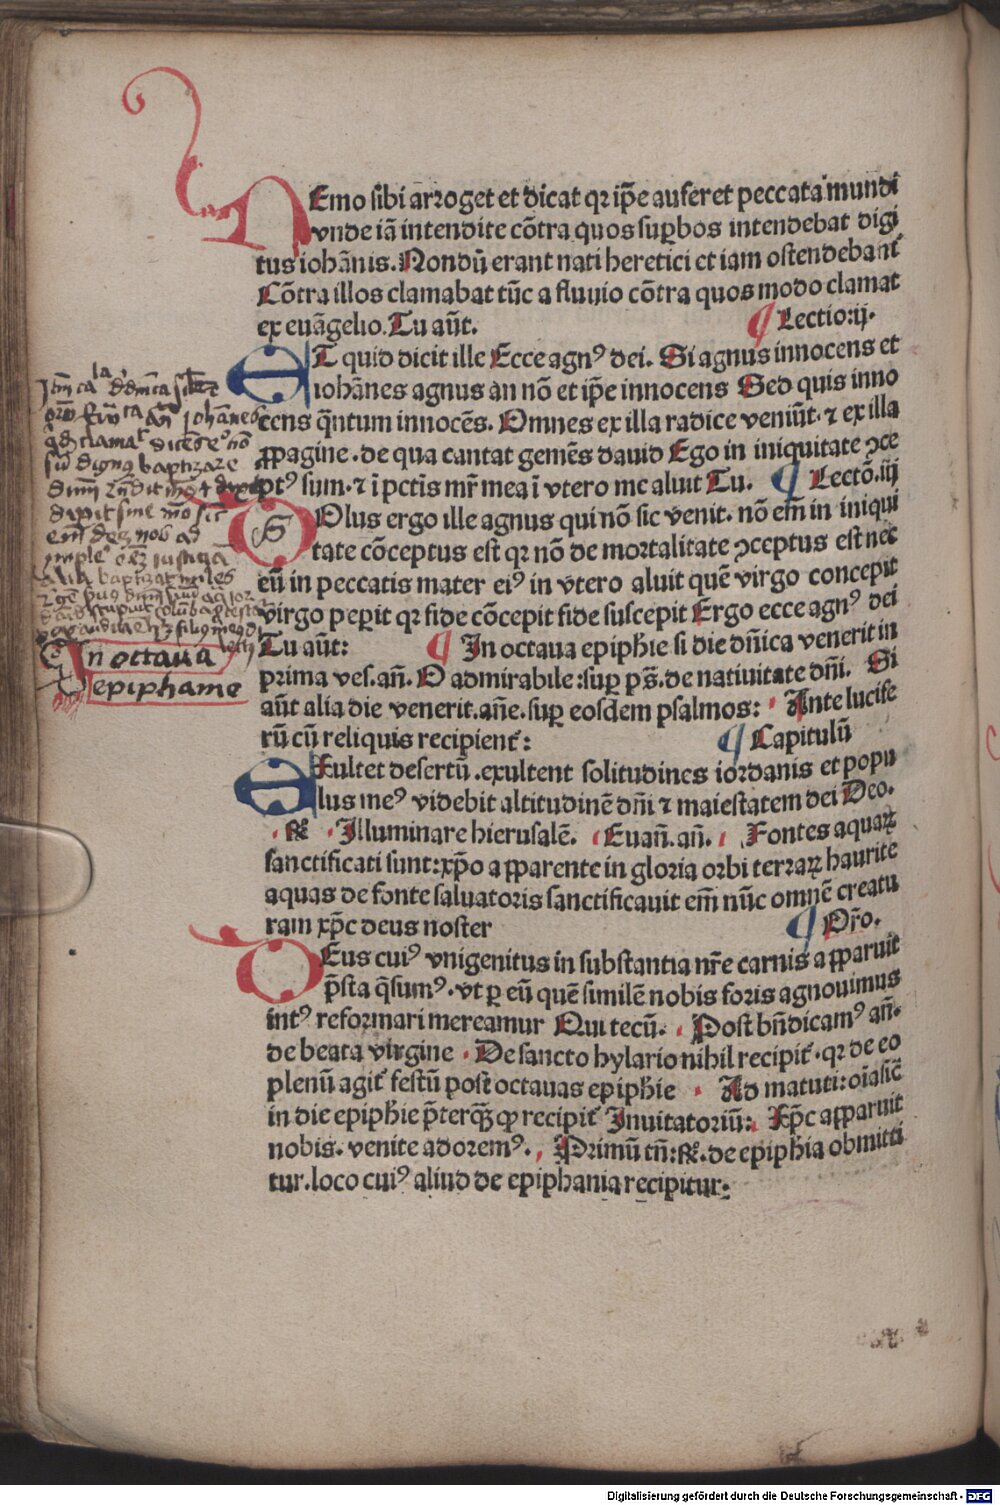 NEmo sibi arroget et dicat qꝛ ip̄e auferet peccata mundi
vnde iā intendite cōtra quos suꝑbos intendebat digi
tus iohānis. Nondū erant nati heretici et iam ostendebant̄
Cōtra illos clamabat tūc a fluuio cōtra quos modo clamat
ex euāgelio. Tu aūt. ¶ Lectio:ij.
ET quid dicit ille Ecce agnꝰ dei. Si agnus innocens et
iohānes agnus an nō et ip̄e innocens Sed quis inno
cens q̄ntum innocēs. Omnes ex illa radice veniūt. ⁊ ex illa
ꝓpagine. de qua cantat gemēs dauid Ego in iniquitate ꝯce
ptꝰ sum. ⁊ ī pctīs mr̄ mea ī vtero me aluit Tu. ¶ Lectō.iij
SOlus ergo ille agnus qui nō sic venit. nō em̄ in iniqui
tate cōceptus est qꝛ nō de mortalitate ꝯceptus est nec
eū in peccatis mater eiꝰ in vtero aluit quē virgo concepit
virgo peꝑit qꝛ fide cōcepit fide suscepit Ergo ecce agnꝰ dei
Tu aūt: ¶ In octaua epiphīe si die dn̄ica venerit in
prima ves. an̄. O admirabile :suꝑ ps̄. de natiuitate dn̄i. Si
aūt alia die venerit. an̄e. suꝑ eosdem psalmos: Ante lucife
rū cū reliquis recipient̄: ¶ Capitulū
Exultet desertū .exultent solitudines iordanis et popu
lus meꝰ videbit altitudinē dn̄i ⁊ maiestatem dei Deo.
℟ Illuminare hierusalē. Euan̄. an̄. Fontes aquaꝝ
sanctificati sunt: xp̄o apparente in gloria orbi terraꝝ haurite
aquas de fonte saluatoris sanctificauit em̄ nūc omnē creatu
ram xp̄c deus noster ¶ Or̄o.
DEus cuiꝰ vnigenitus in substantia nr̄e carnis apparuit
p̄sta q̄sumꝰ. vt ꝑ eū quē similē nobis foris agnouimus
intꝰ reformari mereamur Qui tecū. Post bn̄dicamꝰ an̄.
de beata virgine De sancto hylario nihil recipit̄. qꝛ de eo
plenū agit̄ festū post octauas epiphīe Ad matuti: oīa sic̄
in die epiphīe p̄terqꝫ ꝙ recipit̄ Inuitatoriū: Xp̄c apparuit
nobis. venite adoremꝰ. Primū tn̄: ℟. de epiphīa obmitti
tur. loco cuiꝰ aliud de epiphania recipitur:
In octaua
epiphanie
Digitalisierung gefördert durch die Deutsche Forschungsgemeinschaft - DFG